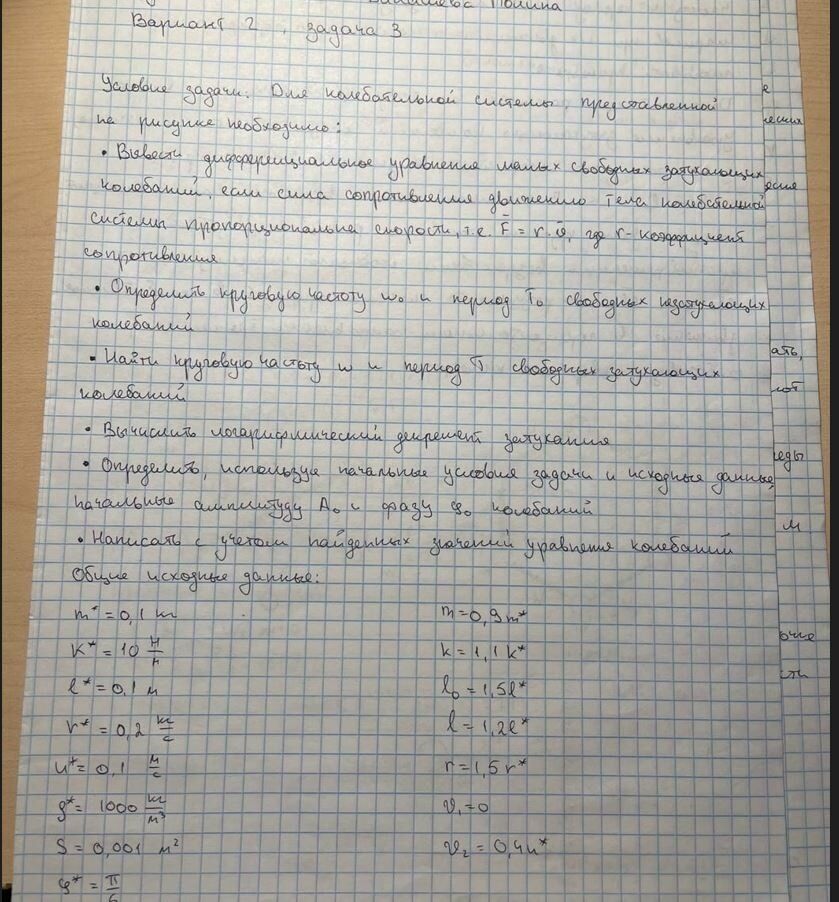 Полина
Вариант 2, задача 3
Условие задачи: Для колебательной системы, представленной
на рисунке необходимо:
• Вывести дифференциальное уравнение малых свободных затухающих
колебаний, если сила сопротивления движению тела колебательной
системы пропорциональна скорости, т.е. F̄ = r·ῡ, где r-коэффициент
сопротивления
• Определить круговую частоту ω₀ и период T₀ свободных незатухающих
колебаний
• Найти круговую частоту ω и период T свободных затухающих
колебаний
• Вычислить логарифмический декремент затухания
• Определить, используя начальные условия задачи и исходные данные,
начальные амплитуду A₀ и фазу φ₀ колебаний
• Написать с учетом найденных значений уравнения колебаний
Общие исходные данные:
m* = 0,1 кг m = 0,9m*
k* = 10 Н/м k = 1,1k*
l* = 0,1 м l₀ = 1,5l*
r* = 0,2 кг/с l = 1,2l*
u* = 0,1 м/с r = 1,5r*
ρ* = 1000 кг/м³ υ₁ = 0
S = 0,001 м² υ₂ = 0,4u*
φ* = π/6